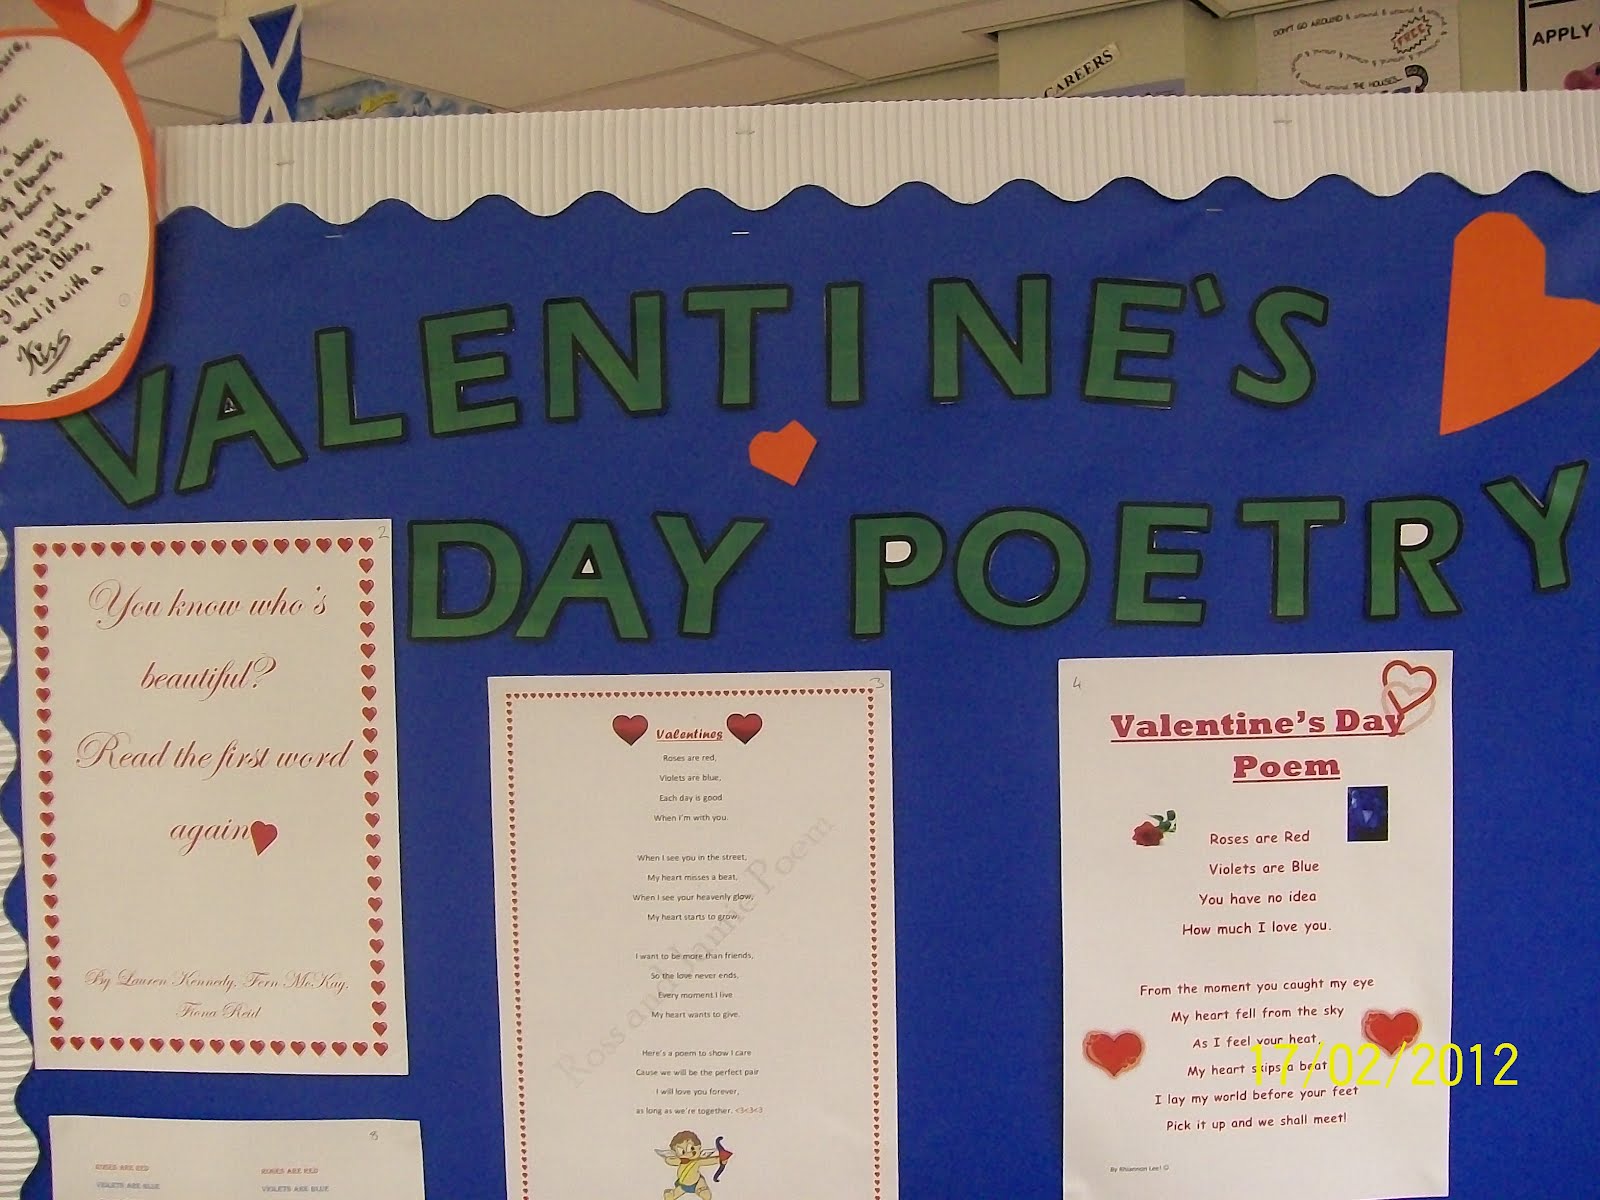 CAREERS
DON'T GO AROUND
FREE
THE HOUSES...
APPLY
a dove.
of flowers,
for hours.
my yard,
and a card
life is Bliss,
seal it with a
Kiss
VALENTINE'S
DAY POETRY
2
You know who's
beautiful?
Read the first word
again
By Lauren Kennedy, Fern McKay,
Fiona Reid
3
Valentines
Roses are red,
Violets are blue,
Each day is good
When I'm with you.
When I see you in the street,
My heart misses a beat,
When I see your heavenly glow,
My heart starts to grow.
I want to be more than friends,
So the love never ends,
Every moment I live
My heart wants to give.
Here's a poem to show I care
Cause we will be the perfect pair
I will love you forever,
as long as we're together. <3<3<3
Ross and Jamie Poem
4
Valentine's Day
Poem
Roses are Red
Violets are Blue
You have no idea
How much I love you.
From the moment you caught my eye
My heart fell from the sky
As I feel your heat,
My heart skips a beat
I lay my world before your feet
Pick it up and we shall meet!
By Rhiannon Lee! ☺
17/02/2012
8
ROSES ARE RED
VIOLETS ARE BLUE
ROSES ARE RED
VIOLETS ARE BLUE